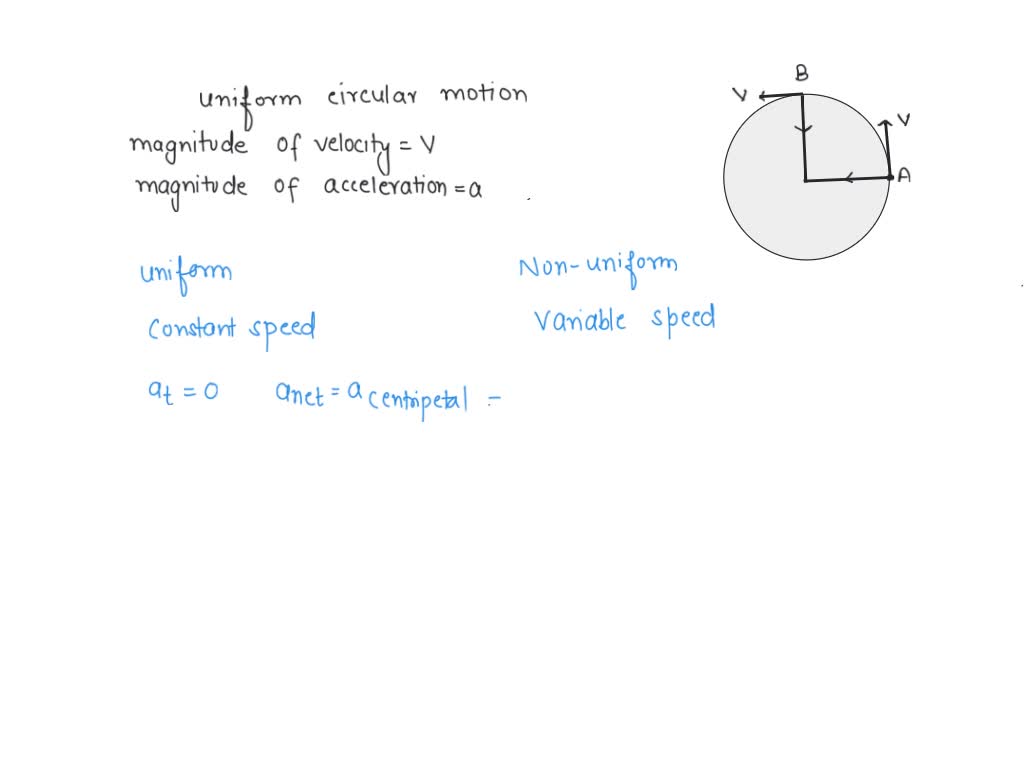 B
uniform circular motion
V
V
magnitude of velocity = V
A
magnitude of acceleration = a
uniform
Non-uniform
Constant speed
Variable speed
at = 0 anet = a centripetal =